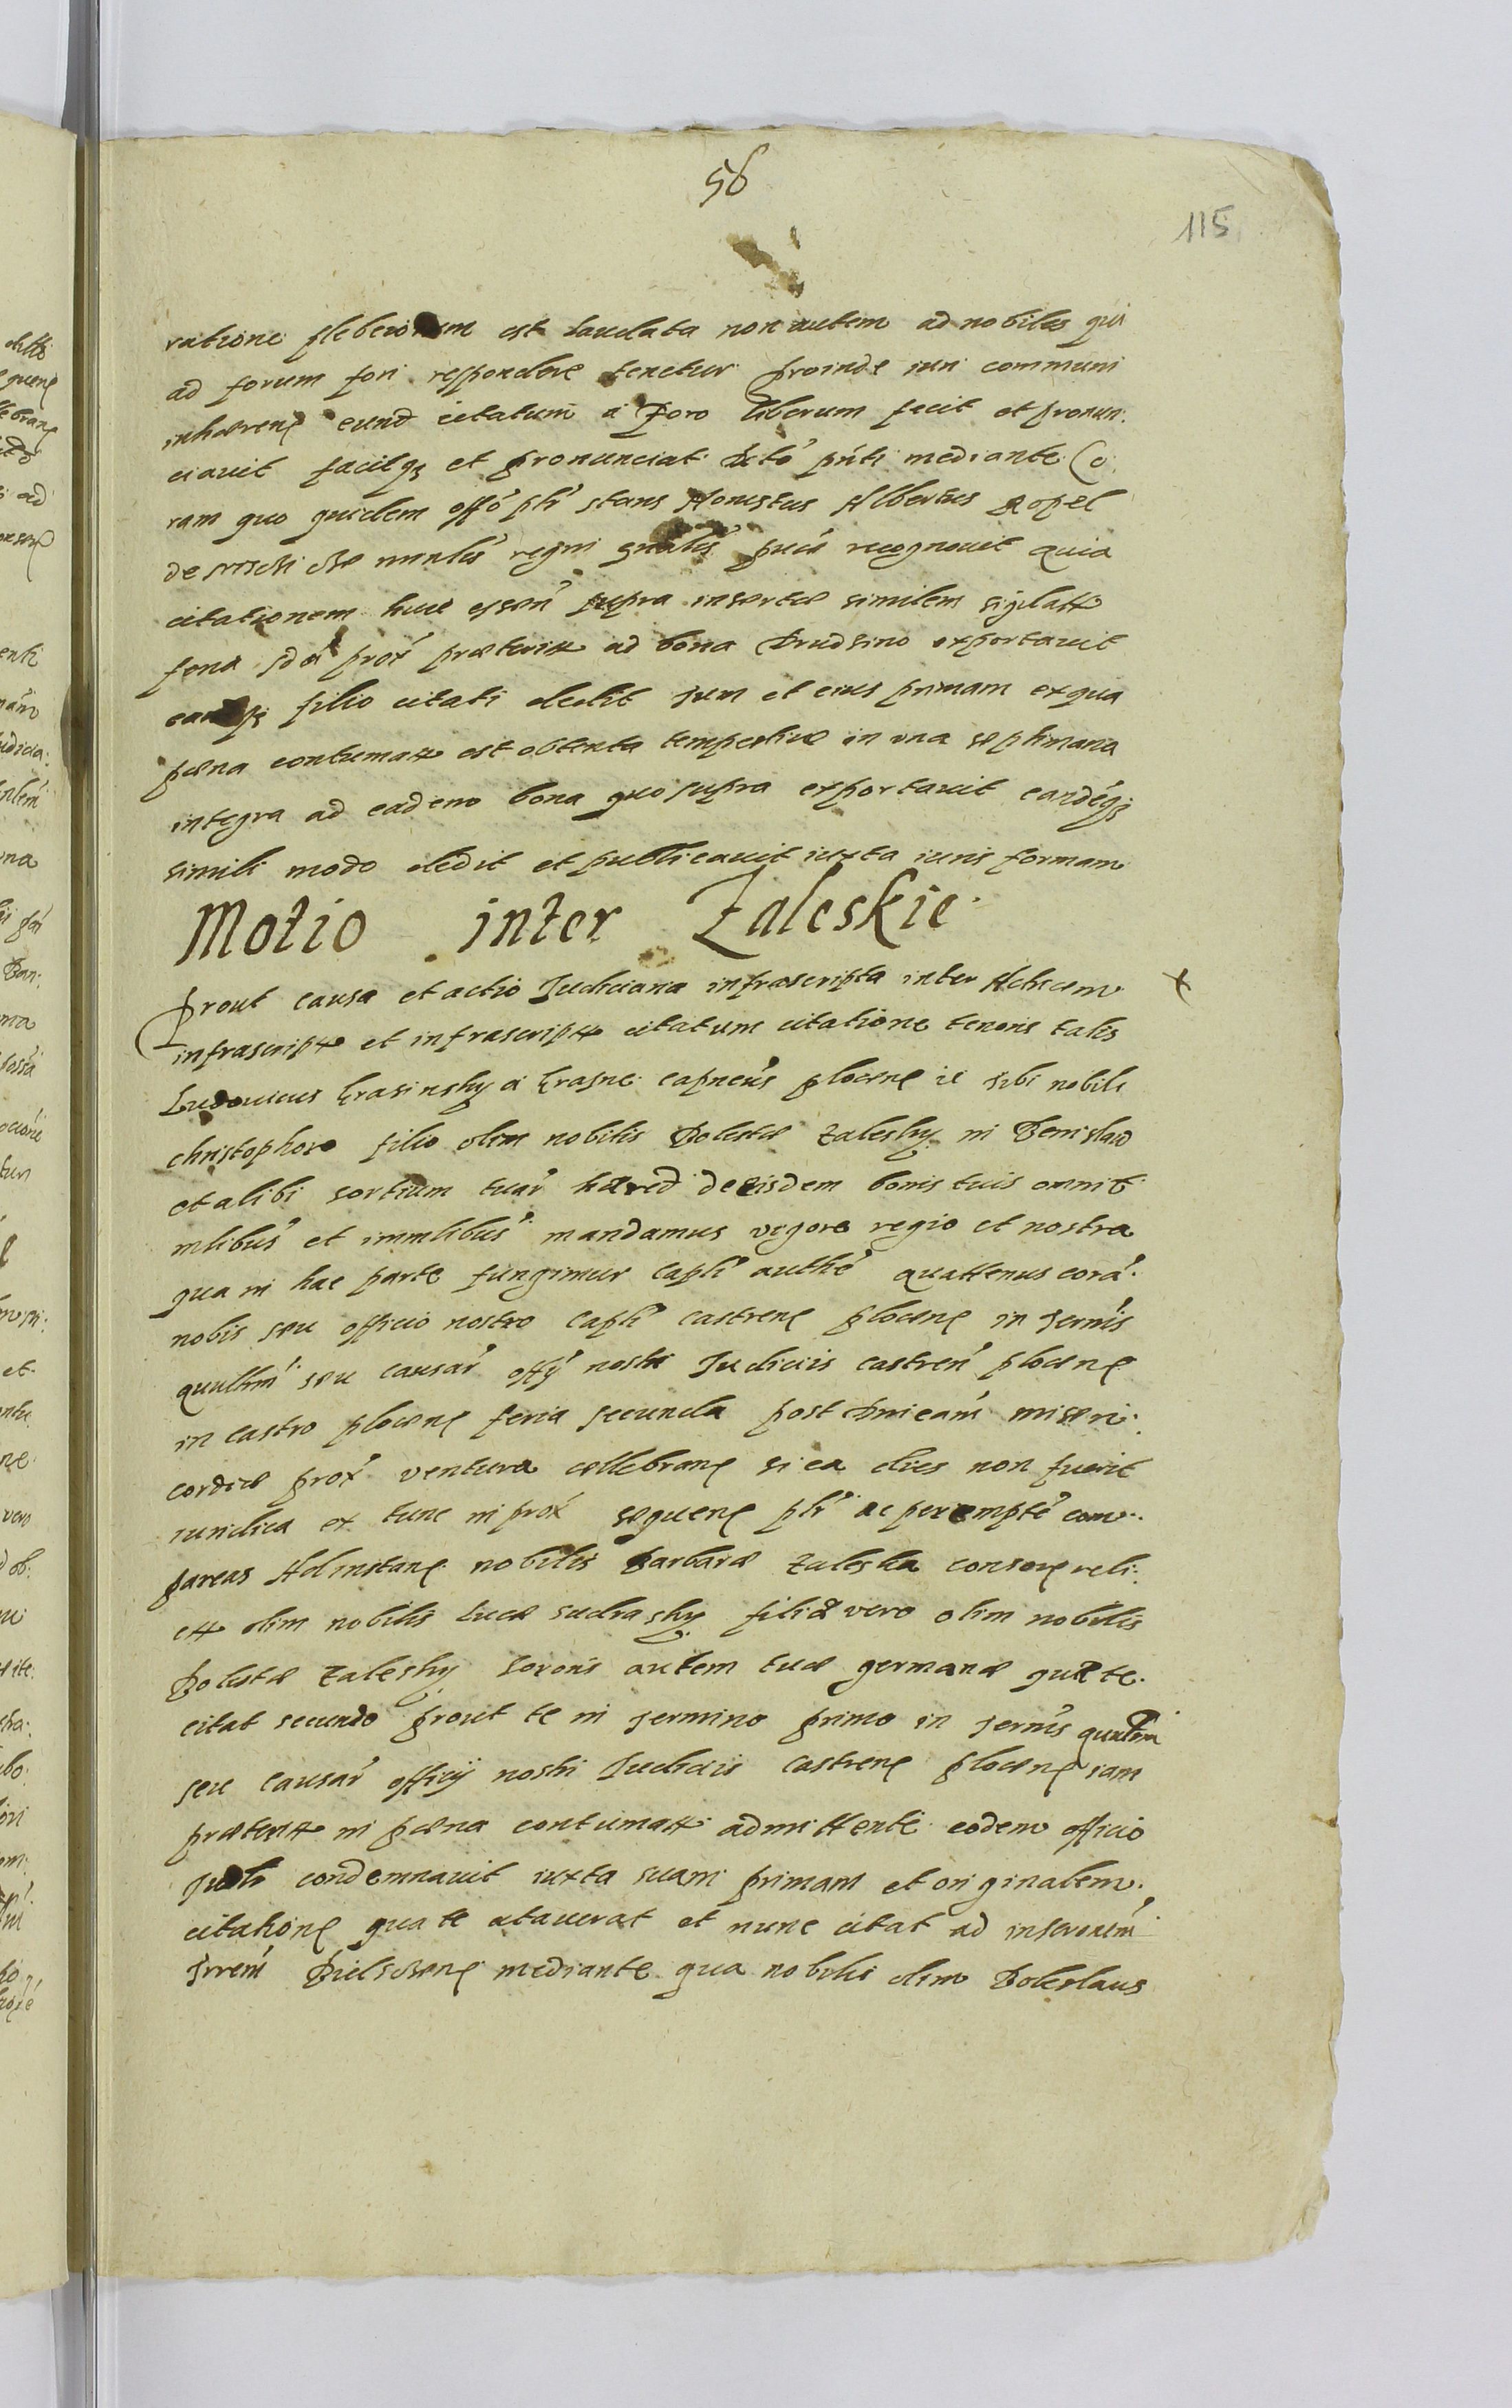 56
115
ratione plebeiorum est laudata non autem ad nobiles qui
ad forum fori respondere tenetur proinde iuri communi
inhærenς eund citatum a foro liberum facit et pronun:
ciauit facitqȝ et pronunciat Scto pnti mediante Co:
ram quo quidem offo pli stans Honestus Albertus Popel
de mnlis regni gnalis recognouit quia
citationem huic supra insertæ similem sigilatt
feria prox præterit ad bona Drudzino exportauit
eamqȝ filio citati dedit Jum et eius primam ex qua
pæna contumatt est obtenta tempestiue in vna septimana
integra ad eadem bona quo supra exportauit eandeqȝ
simili modo dedit et publicauit iuxta iuris formam
Motio inter Zaleskie
Prout causa et actio Judiciaria infrascripta inter Actricem x
infrascript et infrascript citatum citatione tenoris talis
Ludouicus Krasinsky a Krasne capneus plocenς ic tibi nobili
christophoro filio olim nobilis Bolestæ Zalesky in Benislaw
et alibi sortium tuar hæred de eisdem bonis tuis omnib
mlibus et immlibus mandamus vigore regio et nostra
qua in hac parte fungimur Capli authe quattenus cora
nobis seu officio nostro Capli castrenς plocenς in Jernis
qrullim seu causar offy nostri Judiciis castren plocenς
in castro plocenς feria secunda post Dnicam miseri:
cordiæ prox ventura cellebranς si ea dies non fuerit
iuridica ex tunc in prox sequenς pli ac perempte com:
pareas Ad instanς nobilis Barbaræ Zaleska consorς reli:
ctt olim nobilis Lucæ sudrasky filiæ vero olim nobilis
Bolestæ Zalesky Sororis autem tuæ germanæ quæ te
citat secundo prout te in termino primo in Jernis qrullim
seu causar officij nostri Judiciis castrenς plocenς iam
præterit in pæna contumatt admittente eodem officio
condemnauit iuxta suam primam et originalem
citationς qua te citauerat et nunc citat ad inscrionem
Jrrem Bielscenς mediante qua nobilis olim Boleslaus